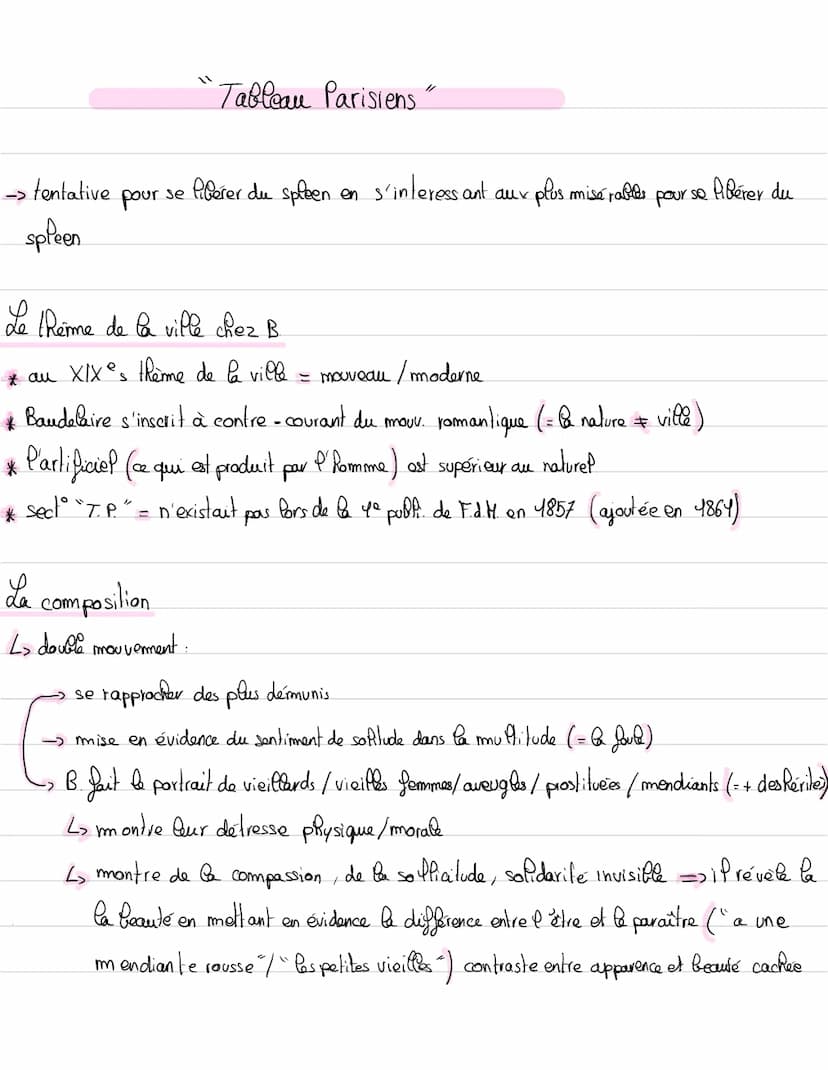 "Tableau Parisiens"
-> tentative pour se libérer du spleen en s'interessant aux plus misérables pour se libérer du
spleen
Le thème de la ville chez B
* au XIXe s thème de la ville = nouveau / moderne
* Baudelaire s'inscrit à contre-courant du mouv. romantique (= la nature ≠ ville)
* l'artificiel (ce qui est produit par l'homme) est supérieur au naturel
* sect° "T.P." = n'existait pas lors de la 1e publi. de F.d.M. en 1857 (ajoutée en 1861)
La composition
↳ double mouvement :
-> se rapprocher des plus démunis
-> mise en évidence du sentiment de solitude dans la multitude (= la foule)
-> B. fait le portrait de vieillards / vieilles femmes / aveugles / prostituées / mendiants (= + deshérités)
↳ montre leur détresse physique/morale
↳ montre de la compassion, de la sollicitude, solidarité invisible => il révèle la
la beauté en mettant en évidence la différence entre l'être et le paraître ("a une
mendiante rousse" / "les petites vieilles") contraste entre apparence et beauté cachée